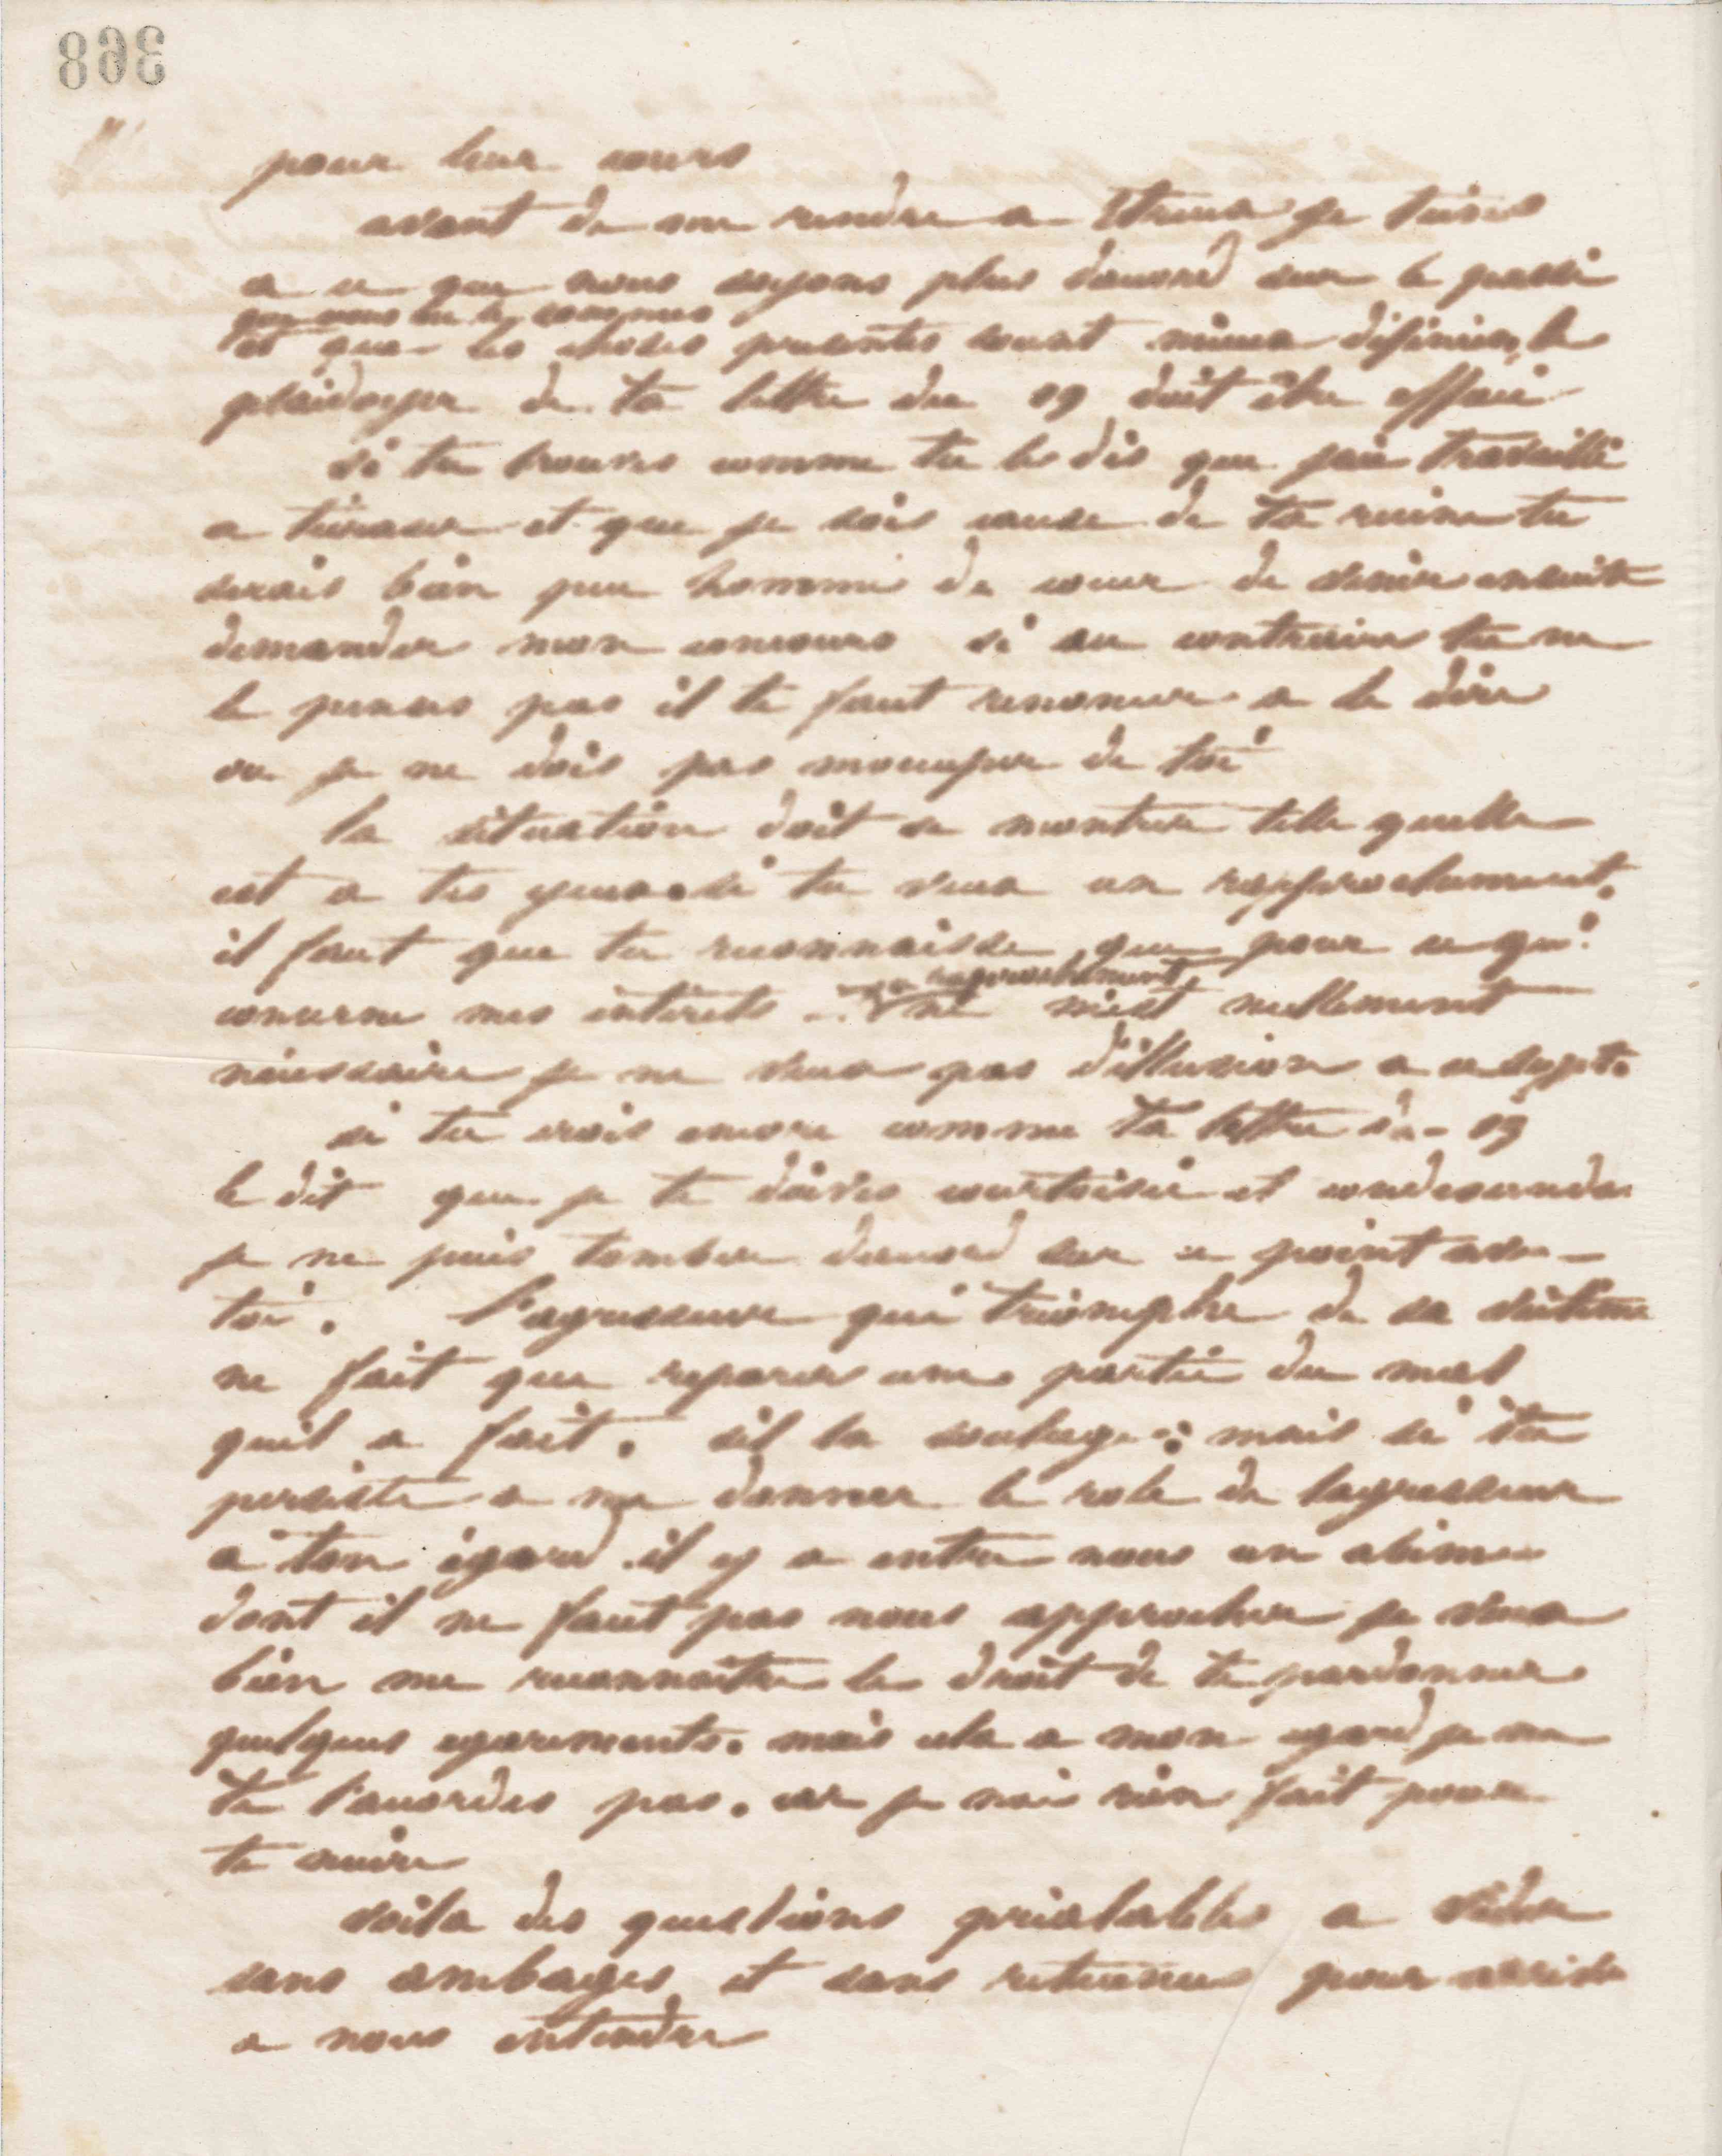 368
pour leur cours
avant de me rendre a je tiens
a ce que nous soyons plus daccord sur le passé
que nous ne le sommes
et que les choses presentes soient mieux definies, le
plaidoyer de ta lettre du 19 doit être effacé
si tu trouves comme tu le dis que jaie travaillé
a et que je sois cause de ta ruine tu
serais bien peu homme de coeur de venir ensuite
demander mon concours si au contraire tu ne
le penses pas il te faut renoncer a le dire
ou je ne dois pas moccuper de toi
la situation doit se montrer telle quelle
est a tes yeux. si tu veux un rapprochement.
il faut que tu reconnaisse que pour ce qui
un raprochement
concerne mes intérêts ne mest nullement
nécessaire je ne veux pas d'illusion a ce sujet.
si tu crois encore comme ta lettre du 19
le dit que je te doives courtoisie et condescendce
je ne puis tomber daccord sur ce point avec
toi. l'agresseur qui triomphe de sa victime
ne fait que reparer une partie du mal
quil a fait. sil la soulage : mais si tu
persiste a me donner le role de lagresseur
a ton égard il y a entre nous un abime
dont il ne faut pas nous approcher je veux
bien me reconnaitre le droit de te pardonner
quelques egarements. mais cela a mon egard je ne
te l'accordes pas. car je nai rien fait pour
te nuire
voila des questions préalables a vider
sans ambages et sans retenues pour arriver
a nous entendre